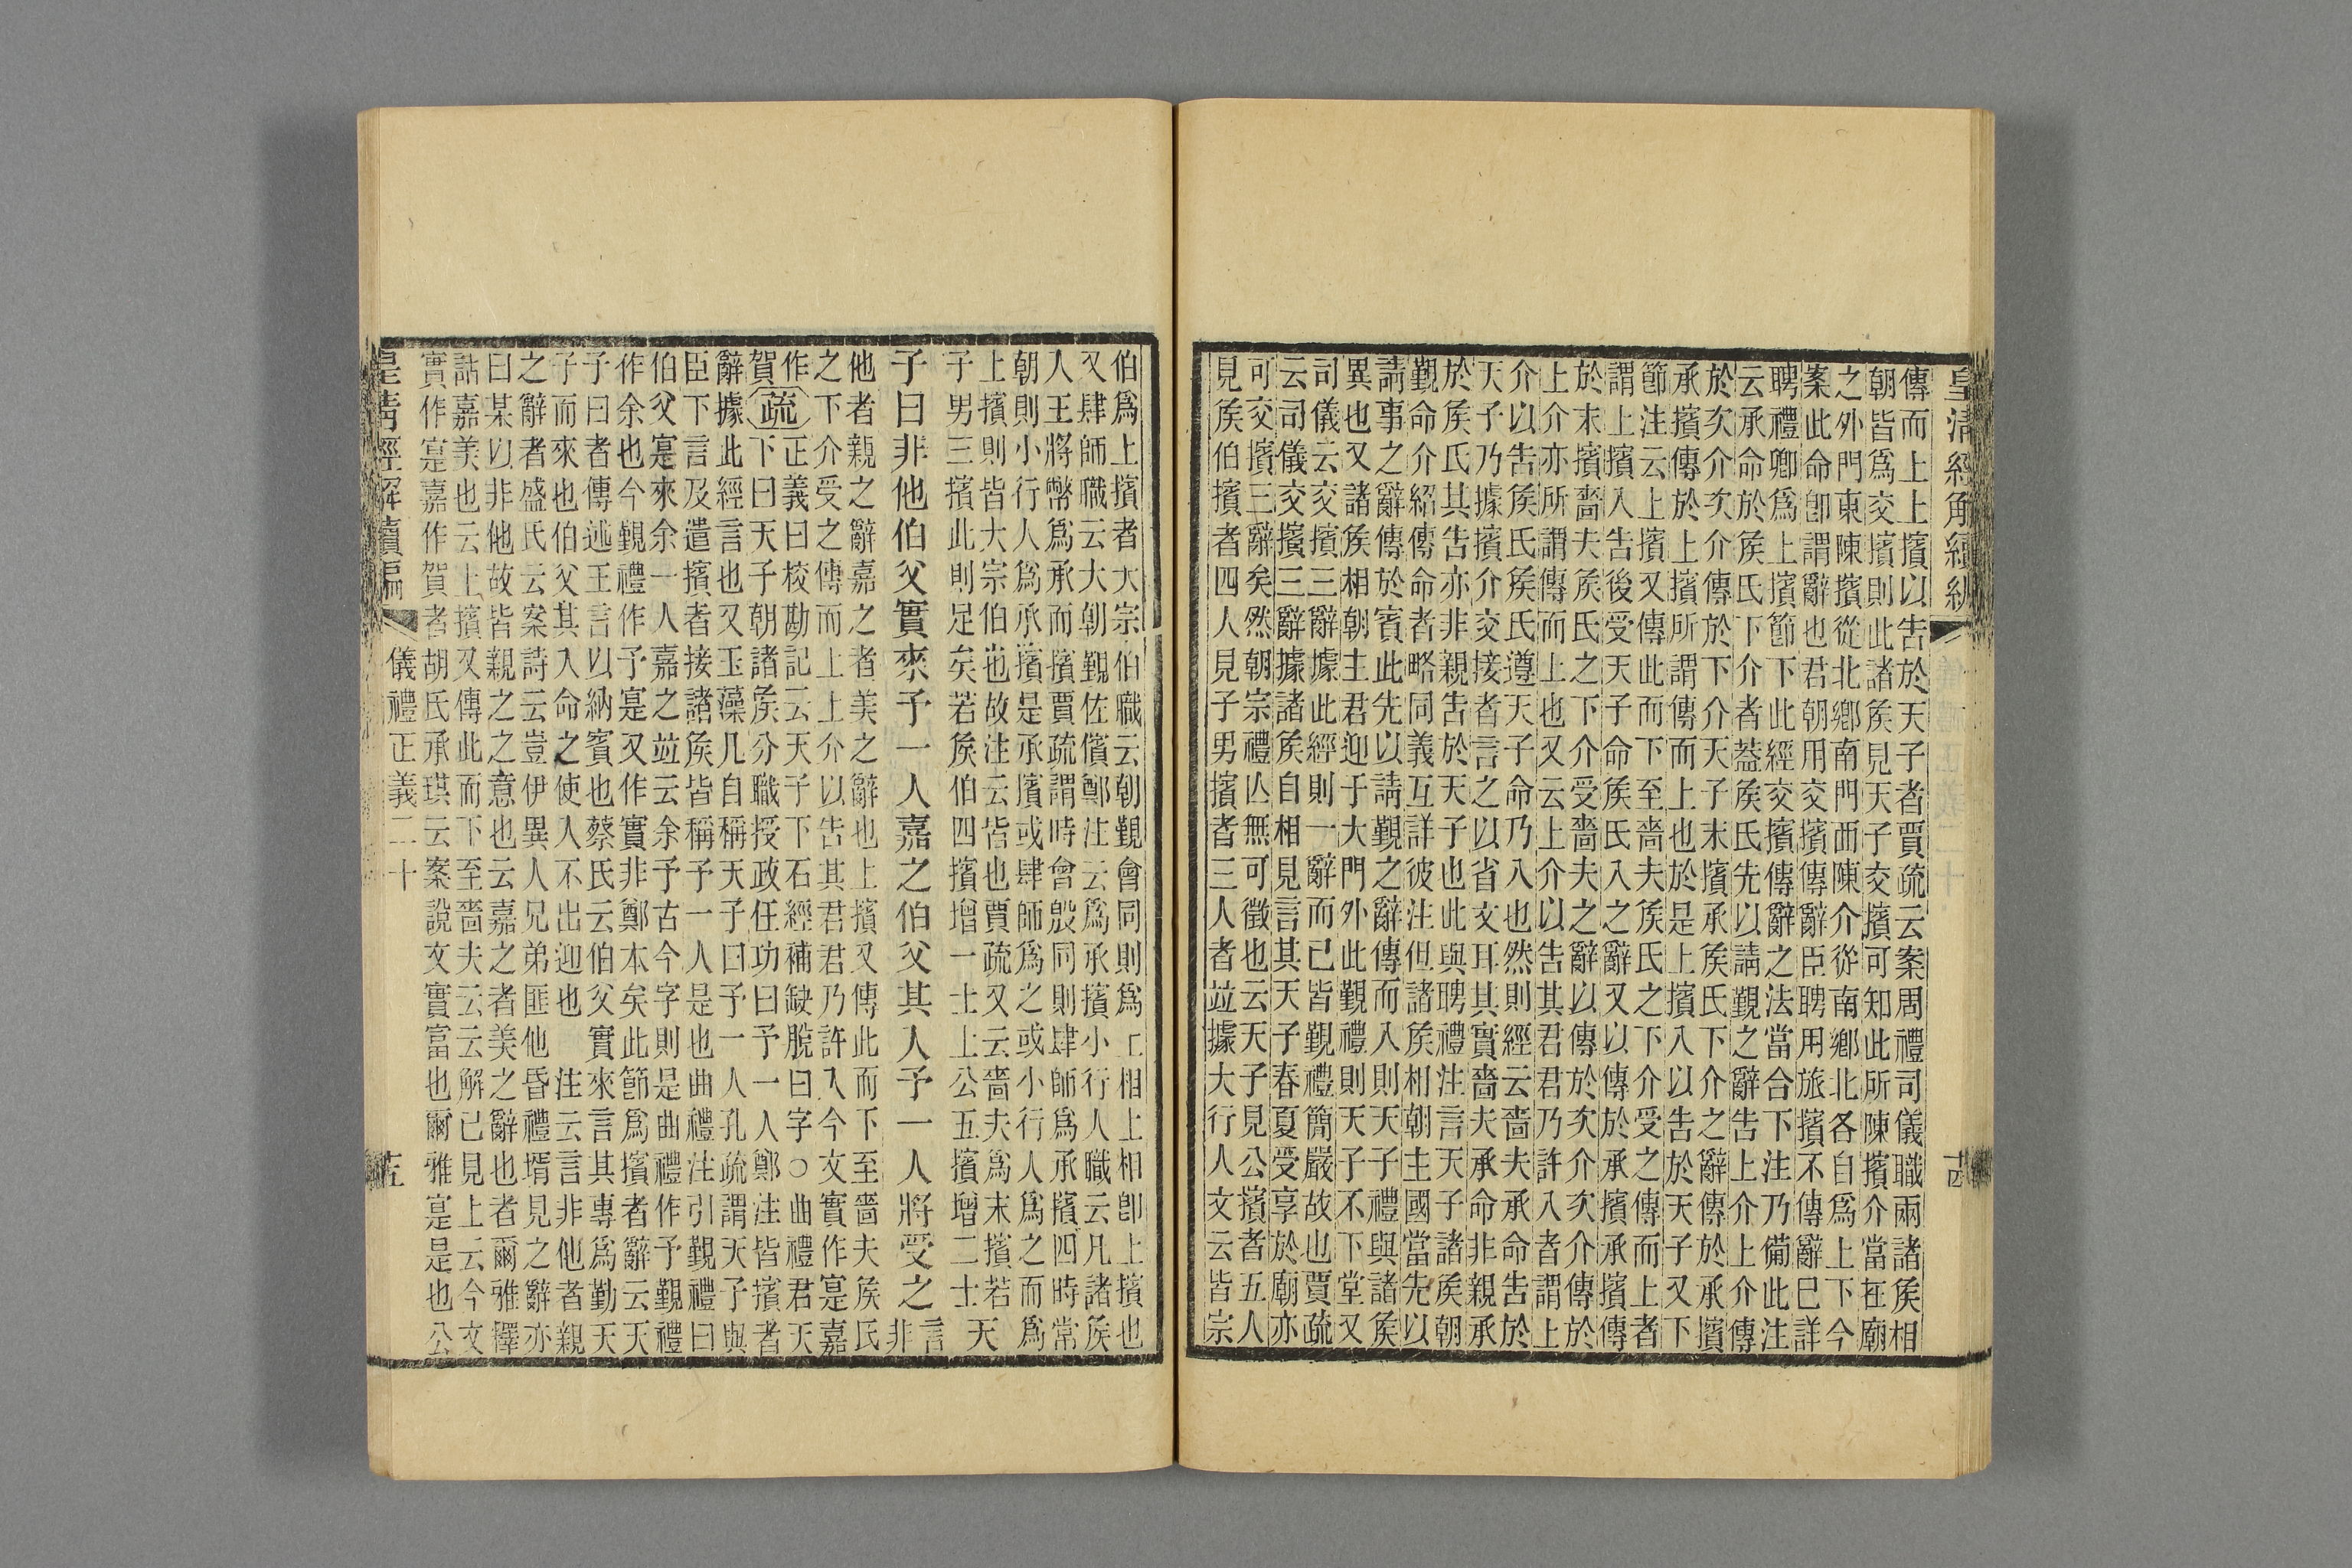 皇清經解續編
十四
傳而上上擯以告於天子者賈疏云案周禮司儀職兩諸矦相
朝皆爲交擯則此諸矦見天子交擯可知此所陳擯介當在廟
之外門東陳擯從北鄉南門西陳介從南鄉北各自爲上下今
案此命卽謂辭也君朝用交擯傳辭臣聘用旅擯不傳辭巳詳
聘禮卿爲上擯節下此經交擯傳辭之法當合下注乃備此注
云承命於矦氏下介者葢矦氏先以請覲之辭告上介上介傳
於㳄介㳄介傳於下介天子末擯承矦氏下介之辭傳於承擯
承擯傳於上擯所謂傳而上也於是上擯入以告於天子又下
節注云上擯又傳此而下至嗇夫矦氏之下介受之傳而上者
謂上擯入告後受天子命矦氏入之辭又以傳於承擯承擯傳
於末擯嗇夫矦氏之下介受嗇夫之辭以傳於㳄介㳄介傳於
上介亦所謂傳而上也又云上介以告其君君乃許入者謂上
介以告矦氏矦氏遵天子命乃入也然則經云嗇夫承命告於
天子乃據擯介交接者言之以省文耳其實嗇夫承命非親承
於矦氏其告亦非親告於天子也此與聘禮注言天子諸矦朝
覲命介紹傳命者略同義互詳彼注但諸矦相朝主國當先以
請事之辭傳於賓此先以請覲之辭傳而入則天子禮與諸矦
異也又諸矦相朝主君迎于大門外此覲禮則天子不下堂又
司儀云交擯三辭據此經則一辭而已皆覲禮簡嚴故也賈疏
云司儀交擯三辭據諸矦自相見言其天子春夏受享於廟亦
可交擯三辭矣然朝宗禮亾無可徵也云天子見公擯者五人
見矦伯擯者四人見子男擯者三人者竝據大行人文云皆宗
伯爲上擯者大宗伯職云朝覲會同則爲上相上相卽上擯也
又肆師職云大朝覲佐儐鄭注云爲承擯小行人職云凡諸矦
人王將幣爲承而擯賈疏謂時會殷同則肆師爲承擯四時常
朝則小行人爲承擯是承擯或肆師爲之或小行人爲之而爲
上擯則皆大宗伯也故注云皆也賈疏又云嗇夫爲末擯若天
子男三擯此則足矣若矦伯四擯增一士上公五擯增二士
子曰非他伯父實來予一人嘉之伯父其人予一人將受之言非
他者親之辭嘉之者美之辭也上擯又傳此而下至嗇夫矦氏
之下介受之傳而上上介以告其君君乃許入今文實作寔嘉
作賀疏正義曰校勘記云天子下石經補缺脫曰字○曲禮君天
下曰天子朝諸矦分職授政任功曰予一人鄭注皆擯者
辭據此經言也又玉藻凡自稱天子曰予一人孔疏謂天子與
臣下言及遣擯者接諸矦皆稱予一人是也曲禮注引覲禮曰
伯父寔來余一人嘉之竝云余予古今字則是曲禮作予覲禮
作余也今覲禮作予寔又作實非鄭本矣此節爲擯者辭云天
子曰者傳述王言以納賓也蔡氏云伯父實來言其專爲勤天
子而來也伯父其入命之使人不出迎也　注云言非他者親
之辭者盛氏云案詩云豈伊異人兄弟匪他昏禮壻見之辭亦
曰某以非他故皆親之之意也云嘉之者美之辭也者爾雅釋
詁嘉美也云上擯又傳此而下至嗇夫云云解已見上云今文
實作寔嘉作賀者胡氏承珙云案說文實富也爾雅寔是也公
皇清經解續編
儀禮正義二十
十五